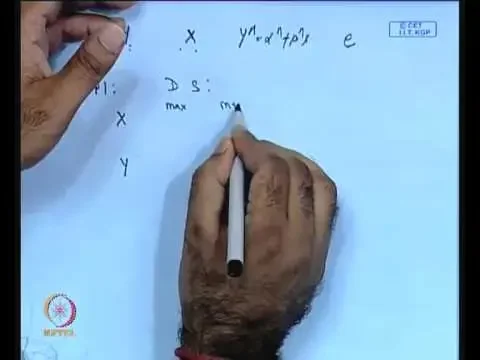 Y X Y^ = α^ + β^x e
© CET
I.I.T. KGP
D S:
max
X
Y
NPTEL